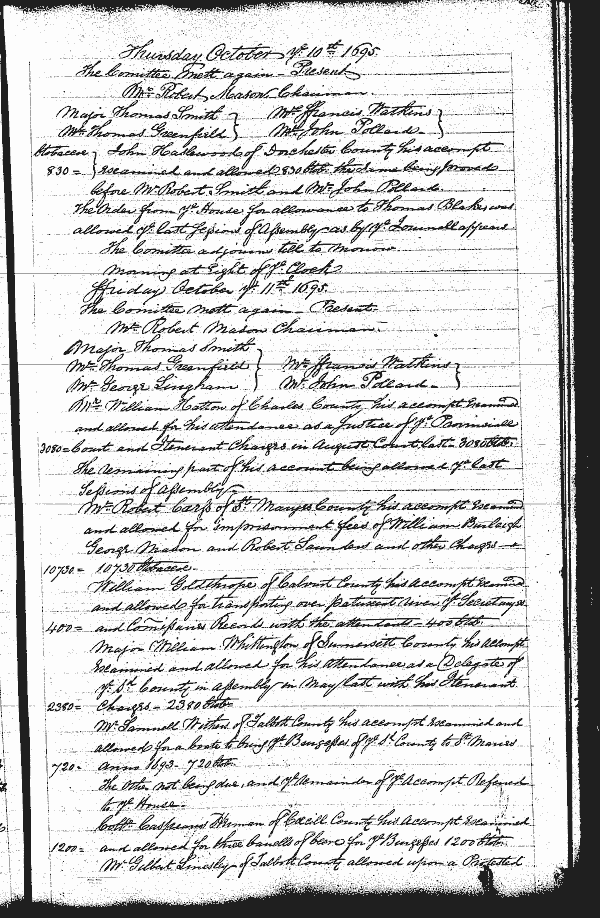 Thursday October ye 10th 1695
The Comittee mett again - Present
Mr Robert Mason Chairman.
Major Thomas Smith } Mr ffrancis Watkins }
Mr Thomas Greenfield } Mr John Pollard - }
tobaccoe } John Haslewood of Dorchester County his accompt
830 = } examined and allowed 830 ltob. the same being proved
before Mr Robert Smith and Mr John Pollard.
The Order from ye House for allowance to Thomas Blake was
allowed ye last Sessions of Assembly as by ye Journall appears
The Comittee adjourns till to morrow
Morning at Eight of ye Clock
ffriday October ye 11th 1695.
The Comittee mett again - Present
Mr Robert Mason Chairman -
Major Thomas Smith
Mr Thomas Greenfield } Mr ffrancis Watkins }
Mr George Lingham } Mr John Pollard - }
Mr William Hatton of Charles County his accompt Examined
and allowed for his attendance as a Justice of ye Provinciall
3080 = Court and Itenerant Charges in August Court last - 3080 ltob.
The remaining part of his account being allowed ye last
Sessions of Assembly -
Mr Robert Carss of St Maryes County his accompt Examined
and allowed for imprisonment fees of William Burleigh
George Mason and Robert Saunders and other Charges -
10730 = 10730 tobaccoe.
William Goldthrope of Calvert County his Accompt Examined
and allowed for transporting over Patuxent River ye Secretarys
400 = and Comissarys Records with the attendants - 400 ltob.
Major William Whittington of Summersett County his Accompt
Examined and allowed for his attendance as a Delegate of
ye sd County in assembly in May last with his Itenerant
2380 = Charges - 2380 ltob
Mr Samuell Withers of Talbott County his accompt examined and
allowed for a boate to bring ye Burgesses of ye sd County to St Maries
720 = Anno 1693 - 720 ltob
The other not being due, and ye remainder of ye Accompt Referred
to ye House -
Collo Casparus Herman of Cecill County his Accompt Examined
1200 = and allowed for three barrells of beer for ye Burgesses 1200 ltob.
Mr Gilbert of Talbott County allowed upon a Protested